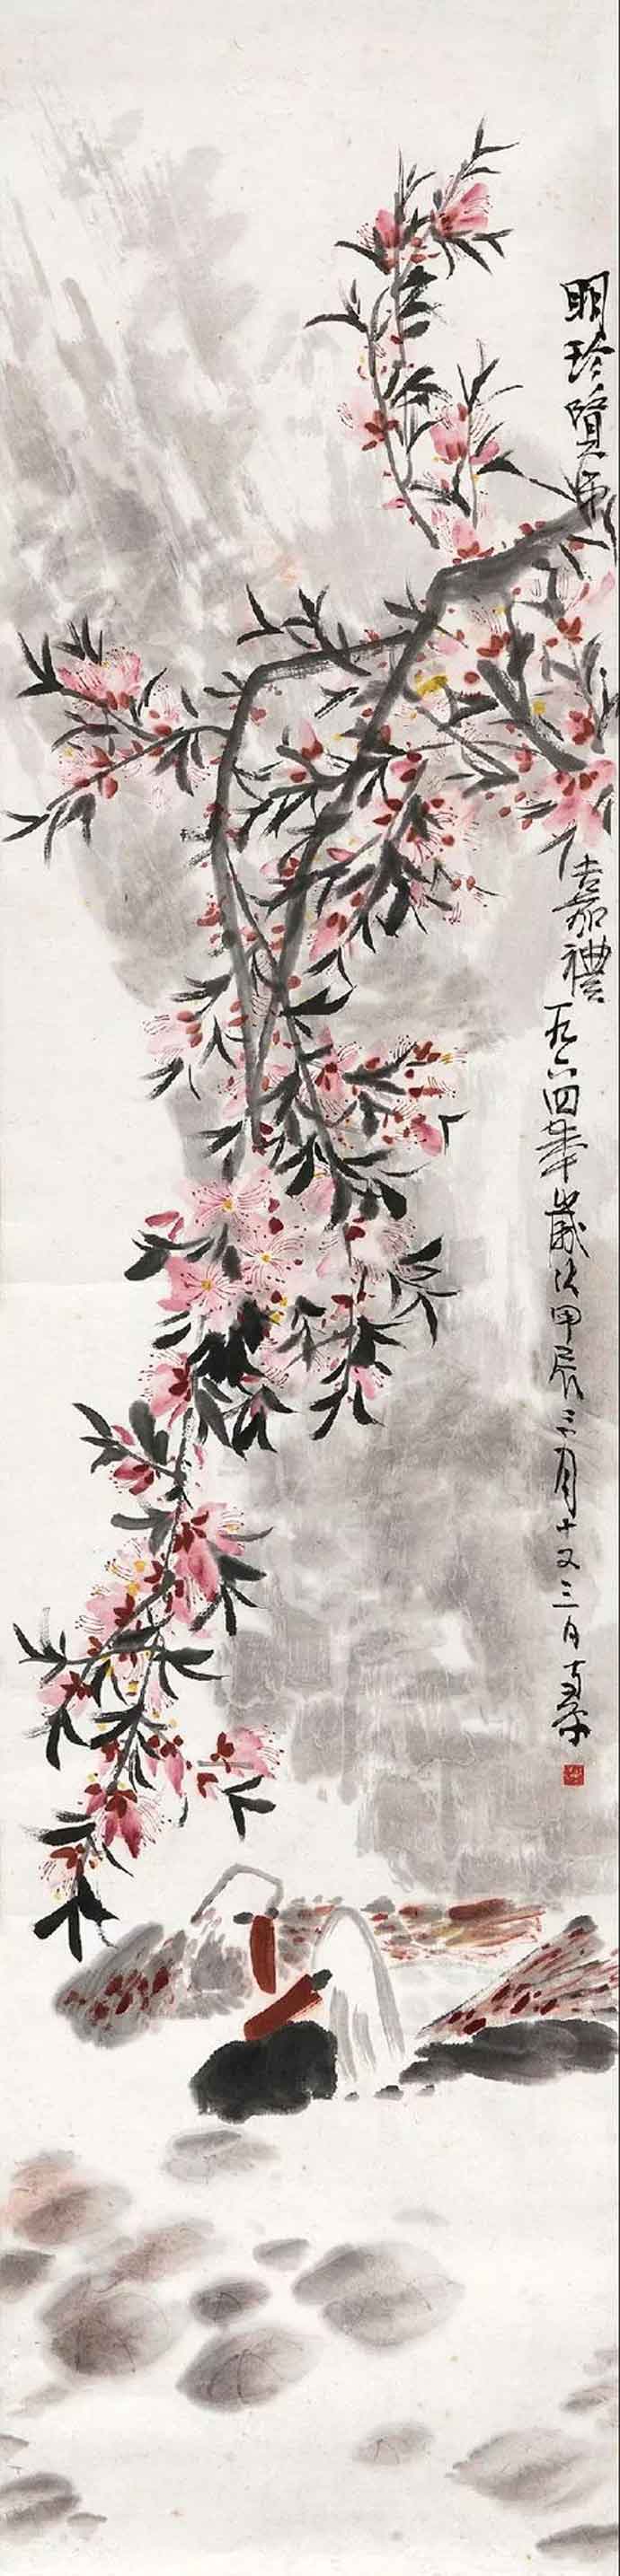 明珍賢弟吉嘉禮一九六四年歲次甲辰三月十又三日